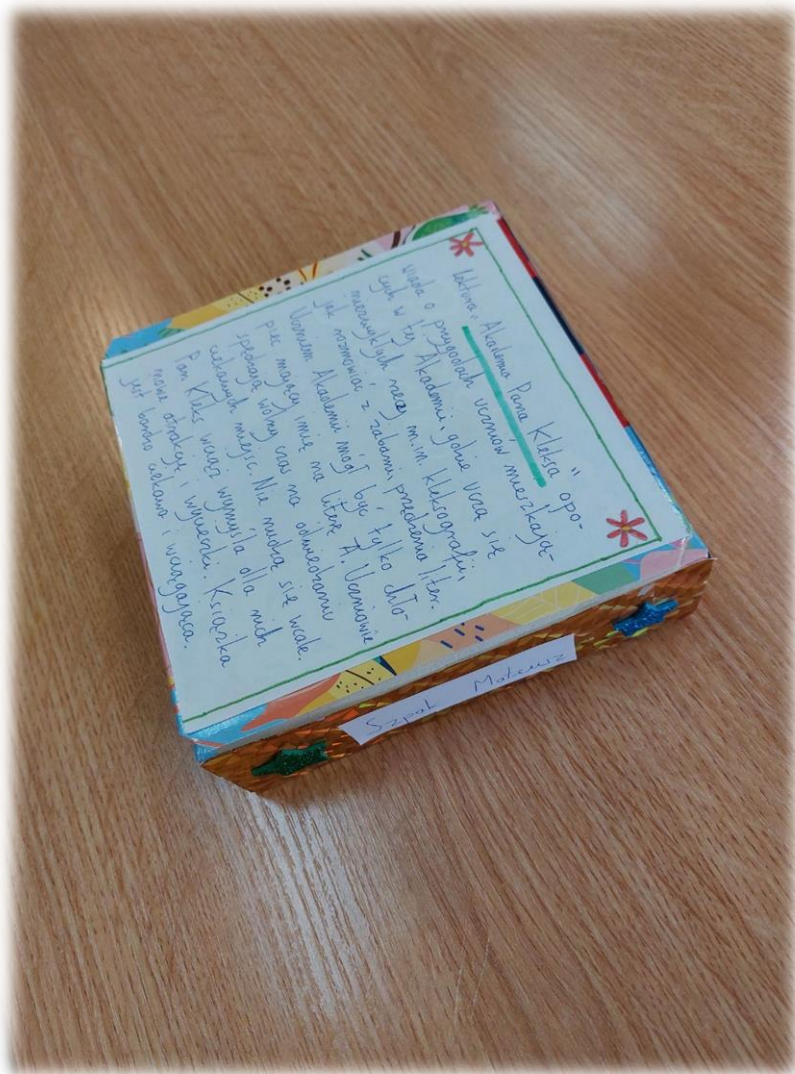 Lektura „Akademia Pana Kleksa" opo-
wiada o przygodach uczniów mieszkają-
cych w tej Akademii, gdzie uczą się
niezwykłych rzeczy m.in. kleksografii,
jak rozmawiać z żabami, przędzenia liter.
Uczniem Akademii mógł być tylko chło-
piec mający imię na literę A. Uczniowie
spędzają wolny czas na odwiedzaniu
ciekawych miejsc. Nie nudzą się wcale.
Pan Kleks wciąż wymyśla dla nich
nowe atrakcje i wycieczki. Książka
jest bardzo ciekawa i wciągająca.
Szpak Mateusz